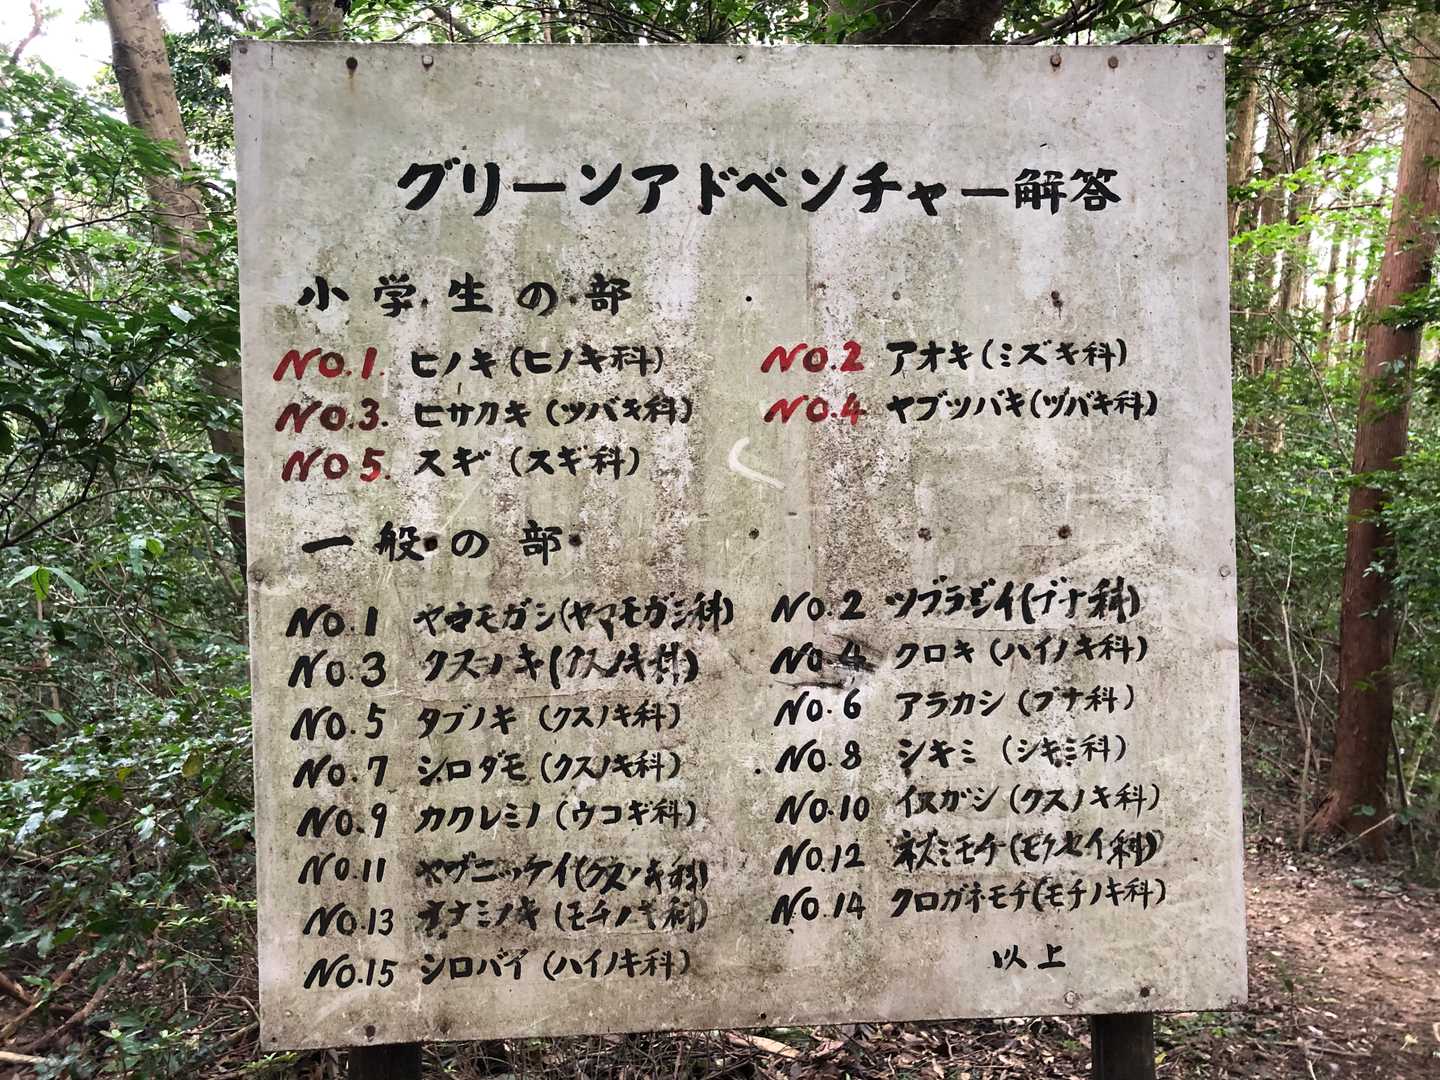 グリーンアドベンチャー解答
小学生の部
NO.1. ヒノキ(ヒノキ科) NO.2 アオキ(ミズキ科)
NO.3. ヒサカキ(ツバキ科) NO.4 ヤブツバキ(ヅバキ科)
NO5. スギ(スギ科)
一般の部
NO.1 ヤマモガシ(ヤマモガシ科) NO.2 ツブラジイ(ブナ科)
NO.3 クスノキ(クスノキ科) NO.4 クロキ(ハイノキ科)
NO.5 タブノキ(クスノキ科) NO.6 アラカシ(ブナ科)
NO.7 シロダモ(クスノキ科) NO.8 シキミ(シキミ科)
NO.9 カクレミノ(ウコギ科) NO.10 イヌガシ(クスノキ科)
NO.11 ヤブニッケイ(クスノキ科) NO.12 ネズミモチ(モクセイ科)
NO.13 ナナミノキ(モチノキ科) NO.14 クロガネモチ(モチノキ科)
NO.15 シロバイ(ハイノキ科)
以上